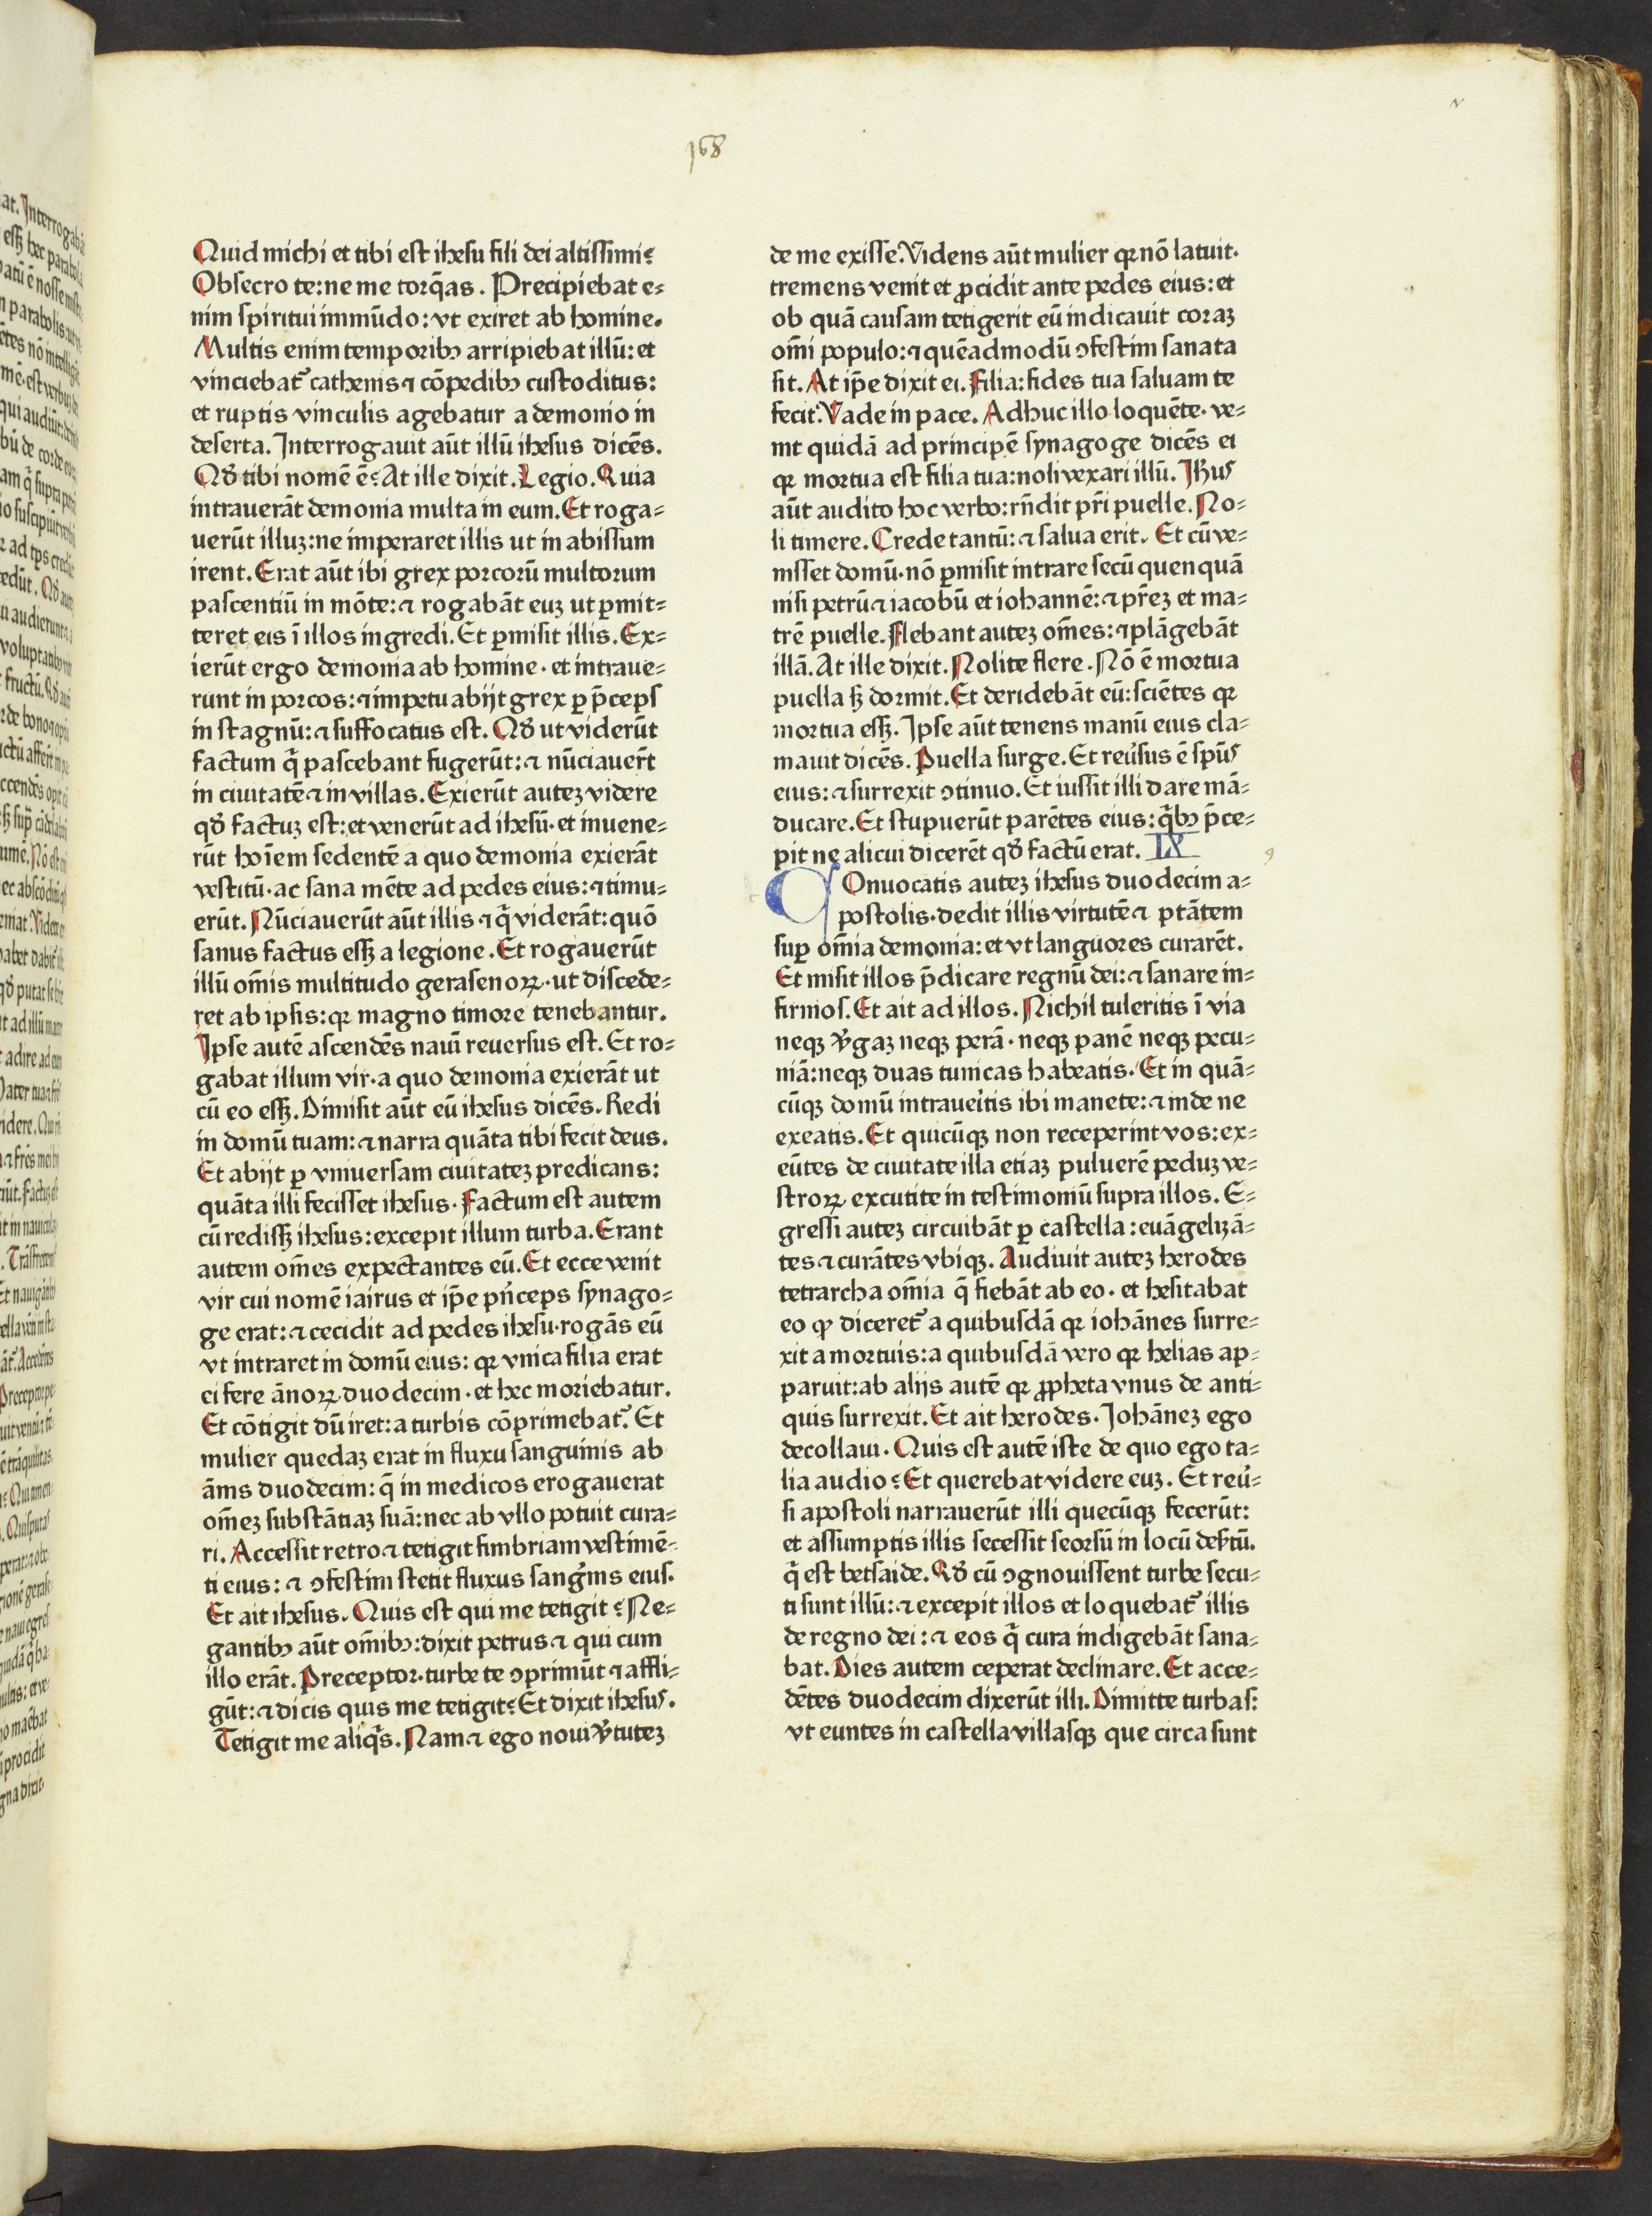 168
Quid michi et tibi est ihesu fili dei altissimi?
Obsecro te: ne me torq̄as. Precipiebat e=
nim spiritui immūdo: vt exiret ab homine.
Multis enim temporibꝰ arripiebat illū: et
vinciebat᷑ cathenis ⁊ cōpedibꝰ custoditus:
et ruptis vinculis agebatur a demonio in
deserta. Interrogauit aūt illū ihesus dicēs.
Qđ tibi nomē ē? At ille dixit. Legio. Quia
intrauerāt demonia multa in eum. Et roga=
uerūt illuꝫ: ne imperaret illis ut in abissum
irent. Erat aūt ibi grex porcorū multorum
pascentiū in mōte: ⁊ rogabāt euꝫ ut ꝑmit=
teret eis ī illos ingredi. Et ꝑmisit illis. Ex=
ierūt ergo demonia ab homine· et intraue=
runt in porcos: ⁊ impetu abijt grex ꝑ p̄ceps
in stagnū: ⁊ suffocatus est. Qđ ut viderūt
factum q̄ pascebant fugerūt: ⁊ nūciauer̄t
in ciuitatē ⁊ in villas. Exierūt auteꝫ videre
qđ factuꝫ est: et venerūt ad ihesū· et inuene=
rūt hoīem sedentē a quo demonia exierāt
vestitū· ac sana mēte ad pedes eius: ⁊ timu=
erūt. Nūciauerūt aūt illis ⁊ q̄ viderāt: quō
sanus factus essꝫ a legione. Et rogauerūt
illū om̄is multitudo gerasenoꝝ· ut discede=
ret ab ipsis: qꝛ magno timore tenebantur.
Ipse autē ascendēs nauī reuersus est. Et ro=
gabat illum vir· a quo demonia exierāt ut
cū eo essꝫ. Dimisit aūt eū ihesus dicēs. Redi
in domū tuam: ⁊ narra quāta tibi fecit deus.
Et abijt ꝑ vniuersam ciuitateꝫ predicans:
quāta illi fecisset ihesus. Factum est autem
cū redissꝫ ihesus: excepit illum turba. Erant
autem om̄es expectantes eū. Et ecce venit
vir cui nomē iairus et ip̄e pn̄ceps synago=
ge erat: ⁊ cecidit ad pedes ihesu· rogās eū
vt intraret in domū eius: qꝛ vnica filia erat
ei fere ānoꝝ duodecim· et hec moriebatur.
Et cōtigit dū iret: a turbis cōprimebat᷑. Et
mulier quedaꝫ erat in fluxu sanguinis ab
ānis duodecim: q̄ in medicos erogauerat
om̄eꝫ substātiaꝫ suā: nec ab vllo potuit cura=
ri. Accessit retro ⁊ tetigit fimbriam vestimē=
ti eius: ⁊ ꝯfestim stetit fluxus sanḡnis eius.
Et ait ihesus. Quis est qui me tetigit? Ne=
gantibꝰ aūt om̄ibꝰ: dixit petrus ⁊ qui cum
illo erāt. Preceptor· turbe te ꝯprimūt ⁊ affli=
gūt: ⁊ dicis quis me tetigit? Et dixit ihesus.
Tetigit me aliq̄s. Nam ⁊ ego noui v̄tuteꝫ
de me exisse. Videns aūt mulier qꝛ nō latuit·
tremens venit et ꝓcidit ante pedes eius: et
ob quā causam tetigerit eū indicauit coraꝫ
om̄i populo: ⁊ quēadmodū ꝯfestim sanata
sit. At ip̄e dixit ei. Filia: fides tua saluam te
fecit. Vade in pace. Adhuc illo loquēte· ve=
nit quidā ad principē synagoge dicēs ei
qꝛ mortua est filia tua: noli vexari illū. Ihus
aūt audito hoc verbo: rn̄dit pr̄i puelle. No=
li timere. Crede tantū: ⁊ salua erit. Et cū ve=
nisset domū· nō ꝑmisit intrare secū quenquā
nisi petrū ⁊ iacobū et iohannē: ⁊ pr̄eꝫ et ma=
trē puelle. Flebant auteꝫ om̄es: ⁊ plāgebāt
illā. At ille dixit. Nolite flere. Nō ē mortua
puella sꝫ dormit. Et deridebāt eū: sciētes qꝛ
mortua essꝫ. Ipse aūt tenens manū eius cla=
mauit dicēs. Puella surge. Et reuersus ē spūs
eius: ⁊ surrexit ꝯtinuo. Et iussit illi dare mā=
ducare. Et stupuerūt parētes eius: q̄bꝰ p̄ce=
pit ne alicui dicerēt qđ factū erat. IX
9
COnuocatis auteꝫ ihesus duodecim a=
postolis· dedit illis virtutē ⁊ ptātem
suꝑ om̄ia demonia: et vt languores curarēt.
Et misit illos p̄dicare regnū dei: ⁊ sanare in=
firmos. Et ait ad illos. Nichil tuleritis ī via
neqꝫ v̄gaꝫ neqꝫ perā· neqꝫ panē neqꝫ pecu=
niā: neqꝫ duas tunicas habeatis. Et in quā=
cūqꝫ domū intraueītis ibi manete: ⁊ inde ne
exeatis. Et quicūqꝫ non receperint vos: ex=
eūtes de ciuitate illa etiaꝫ puluerē peduꝫ ve=
stroꝝ excutite in testimoniū supra illos. E=
gressi auteꝫ circuibāt ꝑ castella: euāgelizā=
tes ⁊ curātes vbiqꝫ. Audiuit auteꝫ herodes
tetrarcha om̄ia q̄ fiebāt ab eo· et hesitabat
eo ꝙ diceret᷑ a quibusdā qꝛ iohānes surre=
xit a mortuis: a quibusdā vero qꝛ helias ap=
paruit: ab alijs autē qꝛ ꝓpheta vnus de anti=
quis surrexit. Et ait herodes. Johāneꝫ ego
decollaui. Quis est autē iste de quo ego ta=
lia audio? Et querebat videre euꝫ. Et reu̓=
si apostoli narrauerūt illi quecūqꝫ fecerūt:
et assumptis illis secessit seorsū in locū deꝭtū.
q̄ est betsaide. Qđ cū ꝯgnouissent turbe secu=
ti sunt illū: ⁊ excepit illos et loquebat᷑ illis
de regno dei: ⁊ eos q̄ cura indigebāt sana=
bat. Dies autem ceperat declinare. Et acce=
dētes duodecim dixerūt illi. Dimitte turbas:
vt euntes in castella villasqꝫ que circa sunt